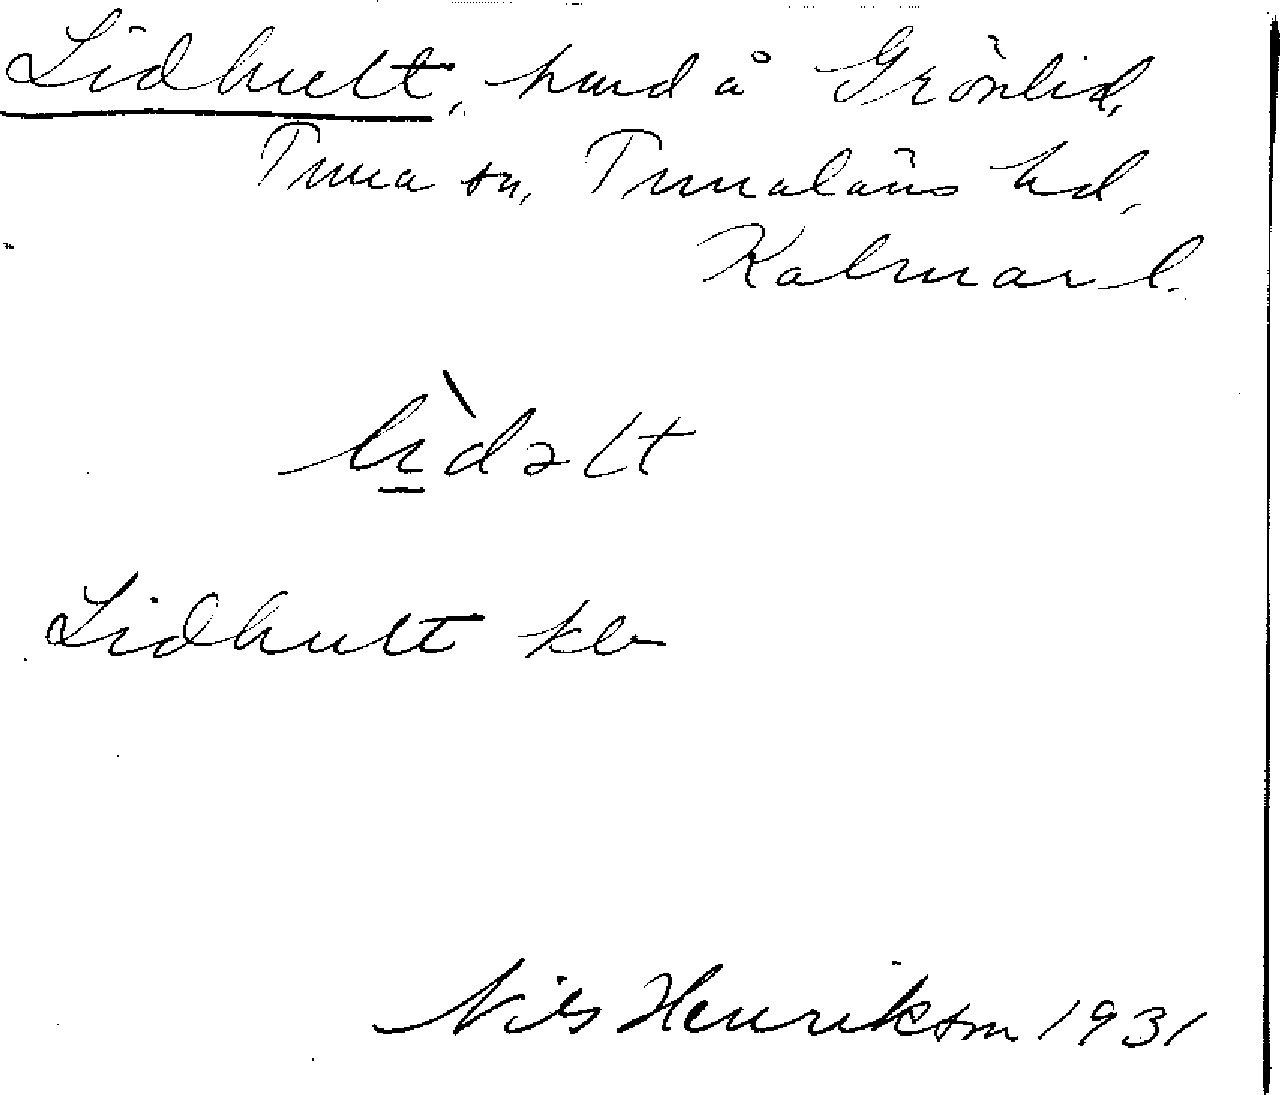 Lidhult, hmd å Grönlid,
Tuna sn, Tunaläns hd,
Kalmar l.
Lidhult
Nils Henrikson 1931